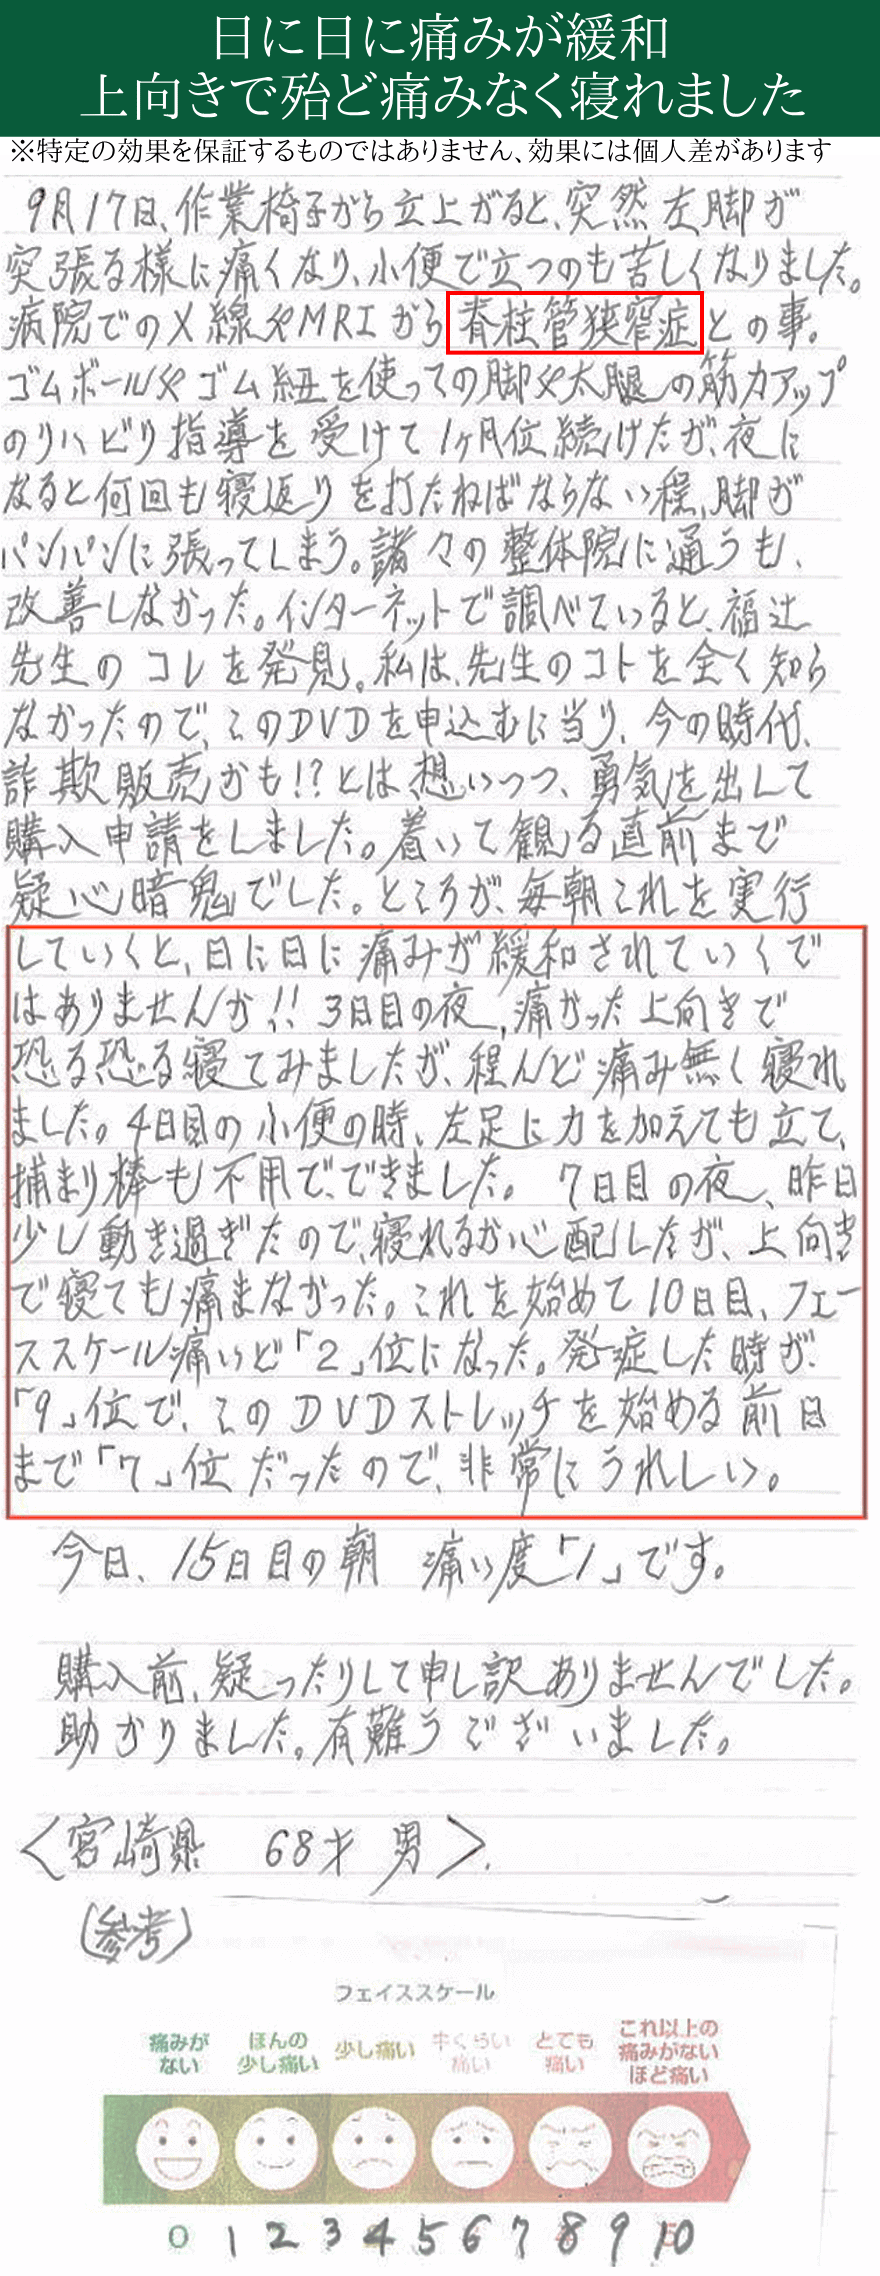 日に日に痛みが緩和
上向きで殆ど痛みなく寝れました
※特定の効果を保証するものではありません、効果には個人差があります
9月17日、作業椅子から立上がると、突然左脚が
突張る様に痛くなり、小便で立つのも苦しくなりました。
病院でのX線やMRIから脊柱管狭窄症との事。
ゴムボールやゴム紐を使っての脚や太腿の筋力アップ
のリハビリ指導を受けて1ヶ月位続けたが、夜に
なると何回も寝返りを打たねばならない程、脚が
パンパンに張ってしまう。諸々の整体院に通うも、
改善しなかった。インターネットで調べていると、福辻
先生のコレを発見。私は、先生のコトを全く知ら
なかったので、このDVDを申込むに当り、今の時代、
詐欺販売かも!?とは想いつつ、勇気を出して
購入申請をしました。着いて観る直前まで
疑心暗鬼でした。ところが、毎朝これを実行
していくと、日に日に痛みが緩和されていくで
はありませんか!! 3日目の夜、痛かった上向きで
恐る恐る寝てみましたが、程んど痛み無く寝れ
ました。4日目の小便の時、左足に力を加えても立て、
捕まり棒も不用で、できました。 7日目の夜、昨日
少し動き過ぎたので、寝れるか心配したが、上向き
で寝ても痛まなかった。これを始めて10日目、フェー
ススケール痛いど「2」位になった。発症した時が
「9」位で、このDVDストレッチを始める前日
まで「7」位だったので、非常にうれしい。
今日、15日目の朝 痛い度「1」です。
購入前、疑ったりして申し訳ありませんでした。
助かりました。有難うございました。
<宮崎県 68才 男>.
(参考)
フェイススケール
痛みが
ない
ほんの
少し痛い
少し痛い
中くらい
痛い
とても
痛い
これ以上の
痛みがない
ほど痛い
0 1 2 3 4 5 6 7 8 9 10